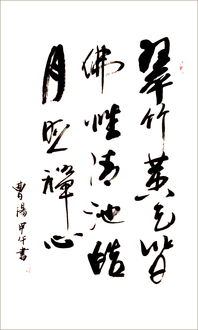 翠竹黄花皆
佛性清池皓
月照禪心
曹湯甲午書